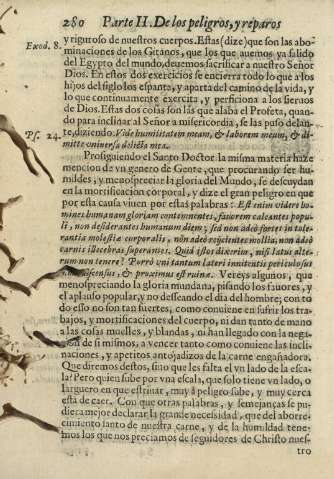 280 Parte II. De los peligros, y reparos
Exod. 8.
y riguroso de nuestros cuerpos. Estas (dize) que son las abo-
minaciones de los Gitanos, que los que auemos ya salido
del Egypto del mundo, deuemos sacrificar a nuestro Señor
Dios. En estos dos exercicios se encierra todo lo que a los
hijos del siglo los espanta, y aparta del camino de la vida, y
lo que continuamente exercita, y perficiona a los sieruos
de Dios. Estas dos cosas son las que alaba el Profeta, quan-
do para inclinar al Señor a misericordia, se las puso delan-
Ps. 24.
te, diziendo: Vide humilitatem meam, & laborem meum, & di-
mitte vniuersa delicta mea.
Prosiguiendo el Santo Doctor la misma materia haze
mencion de vn genero de Gente, que procurando ser hu-
mildes, y menospreciar la gloria del Mundo, se descuydan
en la mortificación corporal, y dize el gran peligro en que
por esta causa viuen por estas palabras: Est enim videre ho-
mines humanam gloriam contemnentes, fauorem calcantes popu-
li, non desiderantes humanum diem; sed non adeò fortes in tole-
rantia molestiæ corporalis, non adeò reijcientes mollia, non adeò
carnis illecebras superantes. Quid istos dixerim, nisi latus alte-
rum non tenere? Porrò vni tantum lateri innitentis periculosus
ascensus, & proximus est ruinæ. Vereys algunos, que
menospreciando la gloria mundana, pisando los fauores, y
el aplauso popular, y no desseando el dia del hombre; con to
do esso no son tan fuertes, como conuiene en sufrir los tra-
bajos, y mortificaciones del cuerpo, ni dan tanto de mano
a las cosas muelles, y blandas, ni han llegado con la nega-
cion de si mismos, a vencer tanto como conuiene las incli-
naciones, y apetitos antojadizos de la carne engañadora.
Que diremos destos, sino que les falta el vn lado de la esca-
la? Pero quien sube por vna escala, que solo tiene vn lado, o
larguero en que estriuar, muy a peligro sube, y muy cerca
está de caer. Con que otras palabras, y semejanças se pu-
diera mejor declarar la grande necessidad, que del aborre-
cimiento santo de nuestra carne, y de la humildad tene-
mos los que nos preciamos de seguidores de Christo nues-
tro